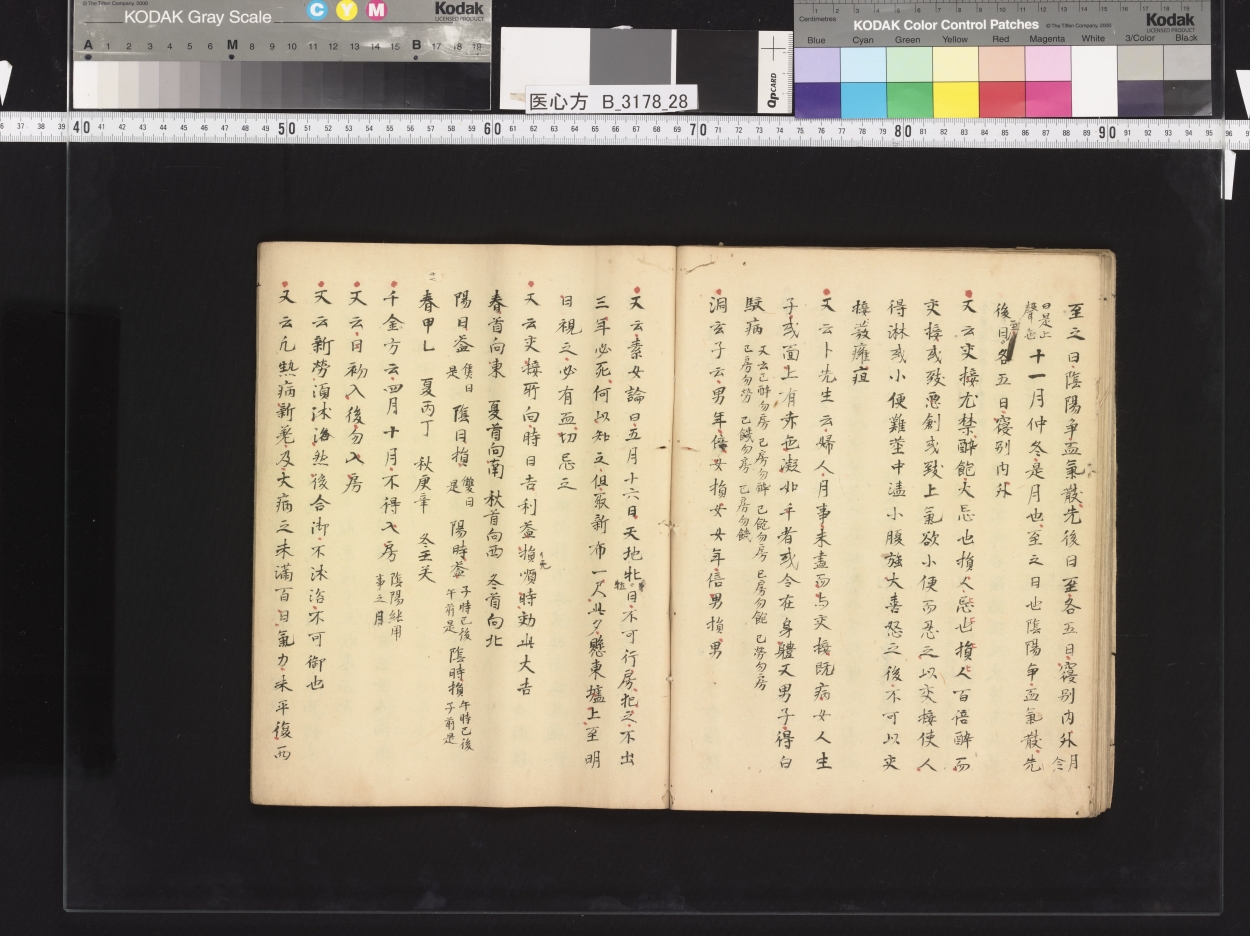 KODAK Gray Scale
C Y M
Kodak
LICENSED PRODUCT
A 1 2 3 4 5 6 M 8 9 10 11 12 13 14 15 B 17 18 19
医心方 B_3178_28
QPCARD
Centimetres
KODAK Color Control Patches
© The Tiffen Company, 2000
Kodak
LICENSED PRODUCT
Blue Cyan Green Yellow Red Magenta White 3/Color Black
至之日陰陽争血氣散先後日至各五日寝别内外
十一月仲冬是月也至之日也陰陽争血氣散先
後日各五日寝别内外
又云交接尤禁醉飽大忌也損人百倍醉而
交接或致悪創或致上氣欲小便而忍之以交接使人
得淋或小便難莖中濇小腹強大喜怒之後不可以交
接發癰疽
又云卜先生云婦人月事未盡而与交接既病女人生
子或面上有赤色凝如手者或令在身體又男子得白
駁病 又云已醉勿房已房勿醉已飽勿房已房勿飽已勞勿房
已房勿勞已饑勿房已房勿饑
洞玄子云男年倍女損女女年倍男損男
又云素女論曰五月十六日天地牝牡日不可行房犯之不出
三年必死何以知之但取新布一尺此夕懸東墻上至明
日視之必有血切忌之
又云交接所向時日吉利益損順時効此大吉
春首向東 夏首向南 秋首向西 冬首向北
陽日益 隻日是 陰日損 雙日是 陽時益 子時已後午前是 陰時損 午時已後子前是
春甲乙 夏丙丁 秋庚辛 冬壬癸
千金方云四月十月不得入房 陰陽純用事之月
又云日初入後勿入房
又云新勞須沐浴然後合御不沐浴不可御也
又云凡熱病新差及大病之未滿百日氣力未平復而